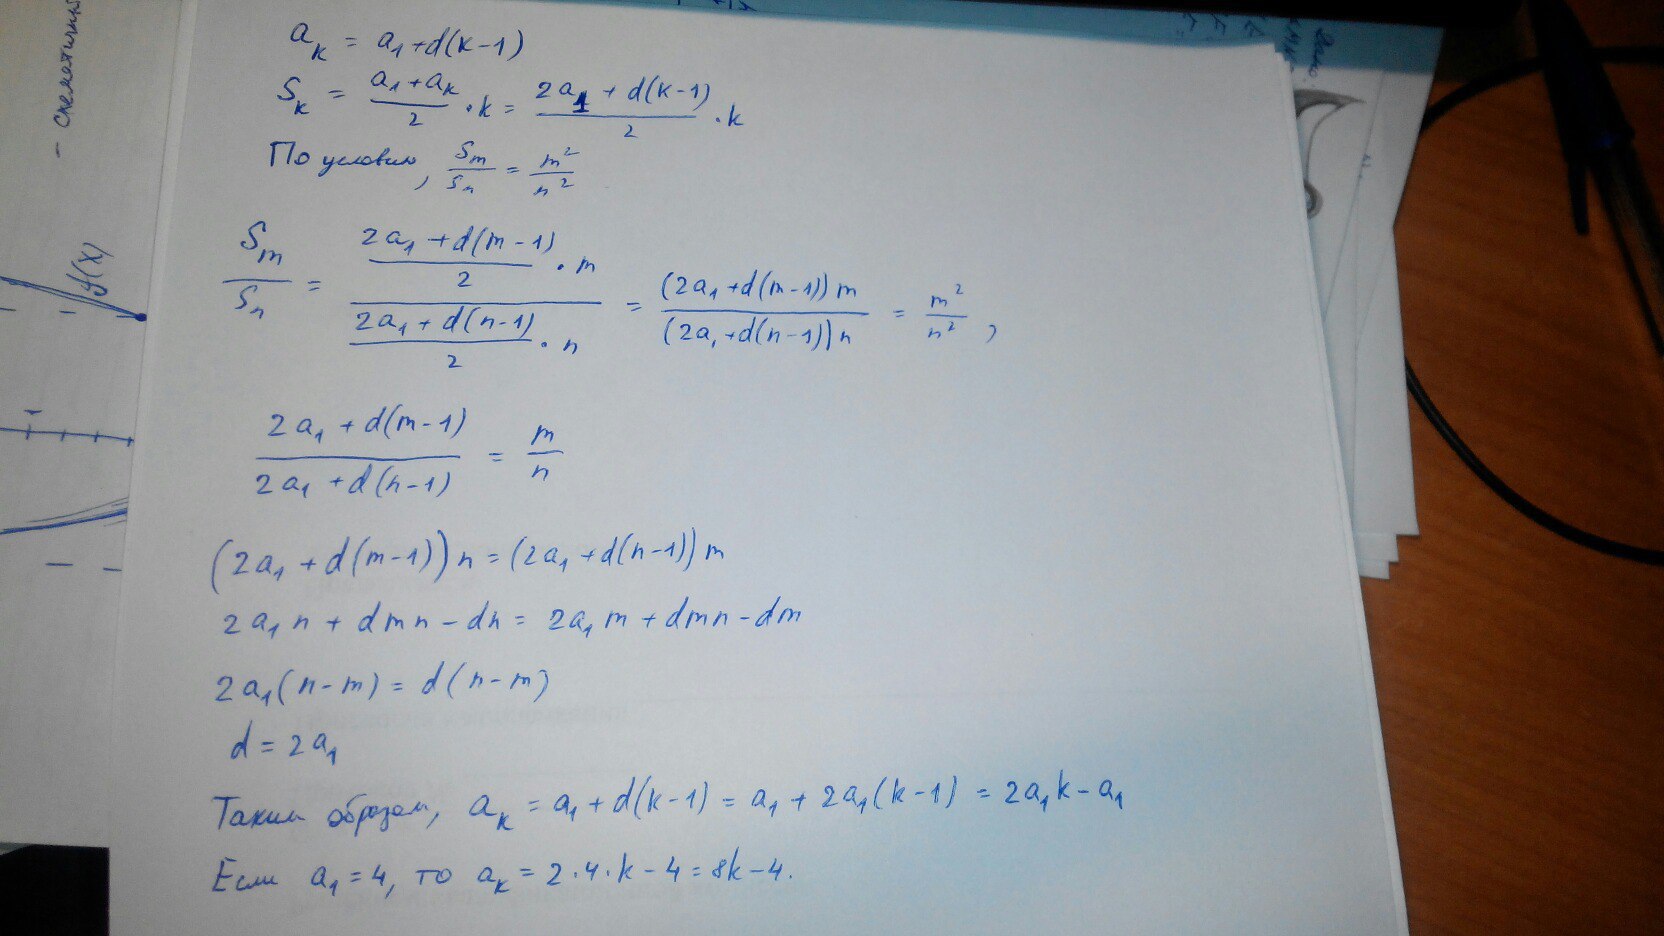 a_k = a_1 + d(k-1)
S_k = (a_1 + a_k)/2 · k = (2a_1 + d(k-1))/2 · k
По условию, S_m/S_n = m²/n²
S_m/S_n = ((2a_1 + d(m-1))/2 · m)/((2a_1 + d(n-1))/2 · n) = ((2a_1 + d(m-1))m)/((2a_1 + d(n-1))n) = m²/n²,
(2a_1 + d(m-1))/(2a_1 + d(n-1)) = m/n
(2a_1 + d(m-1))n = (2a_1 + d(n-1))m
2a_1n + dmn - dn = 2a_1m + dmn - dm
2a_1(n-m) = d(n-m)
d = 2a_1
Таким образом, a_k = a_1 + d(k-1) = a_1 + 2a_1(k-1) = 2a_1k - a_1
Если a_1 = 4, то a_k = 2·4·k - 4 = 8k - 4.
- Схематичный
y(x)